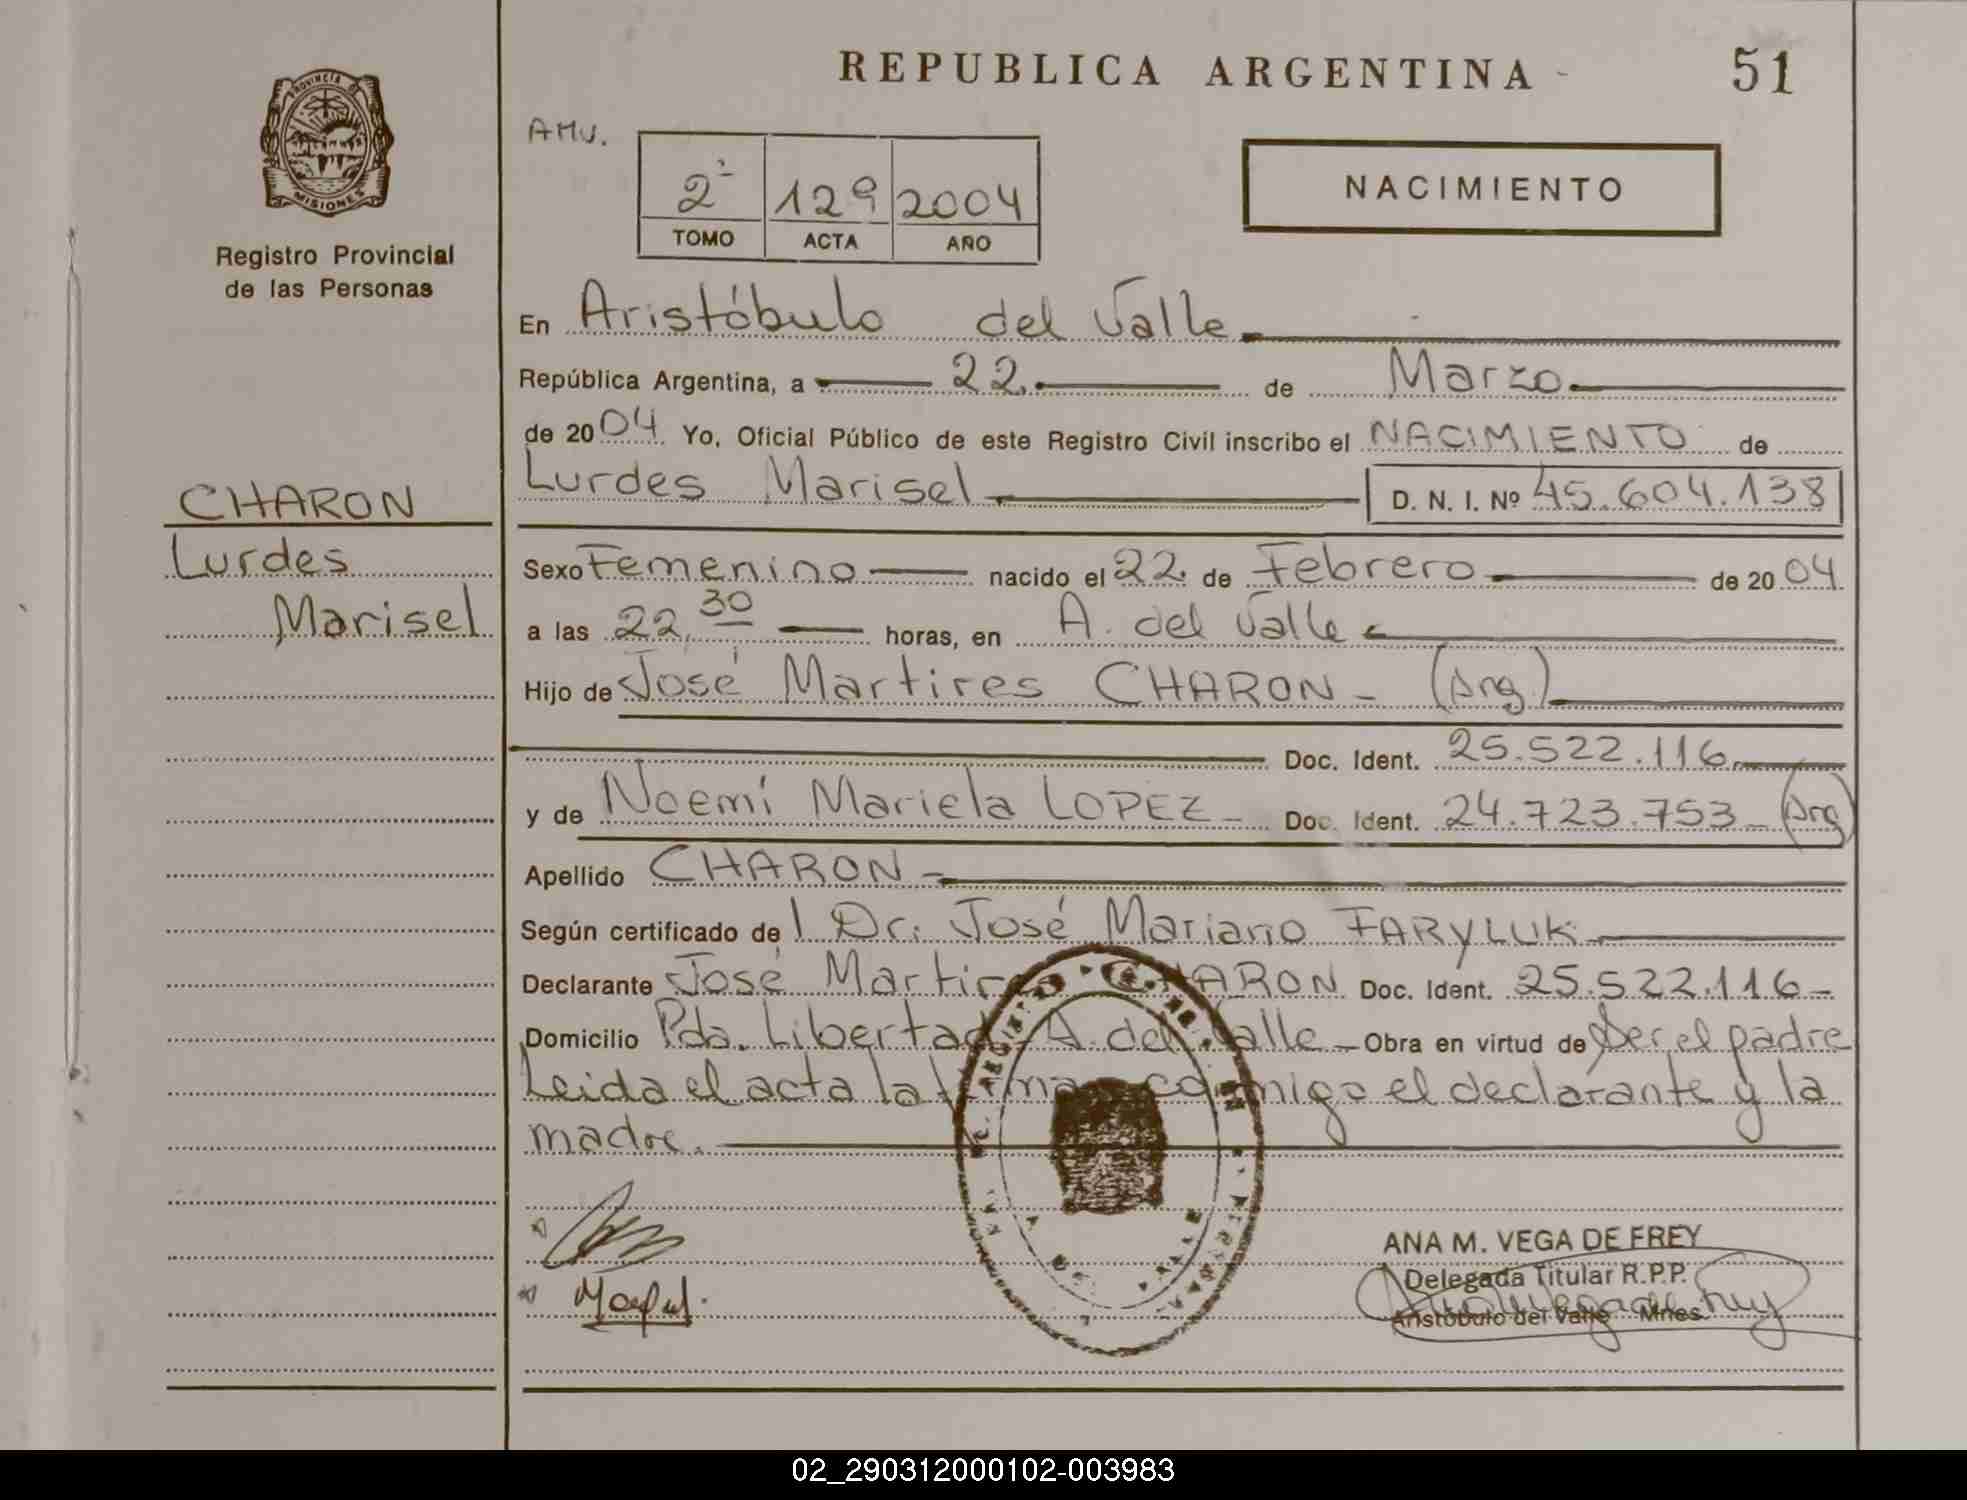 REPUBLICA ARGENTINA
51
PROVINCIA DE
MISIONES
Registro Provincial
de las Personas
AMV.
2ª 129 2004
TOMO ACTA AÑO
NACIMIENTO
En Aristóbulo del Valle
República Argentina, a 22 de Marzo
de 2004 Yo, Oficial Público de este Registro Civil inscribo el NACIMIENTO de
Lurdes Marisel D. N. I. Nº 45.604.138
CHARON
Lurdes
Marisel
Sexo Femenino nacido el 22 de Febrero de 2004
a las 22,30 horas, en A. del Valle
Hijo de José Martires CHARON - (Arg.)
Doc. Ident. 25.522.116
y de Noemí Mariela LOPEZ - Doc. Ident. 24.723.753 - (Arg)
Apellido CHARON -
Según certificado del Dr. José Mariano FARYLUK
Declarante José Martires CHARON Doc. Ident. 25.522.116 -
Domicilio Pda. Libertad - A. del Valle - Obra en virtud de Ser el padre
Leida el acta la firman conmigo el declarante y la
madre.
ANA M. VEGA DE FREY
Delegada Titular R.P.P.
Aristóbulo del Valle Mnes
02_290312000102-003983